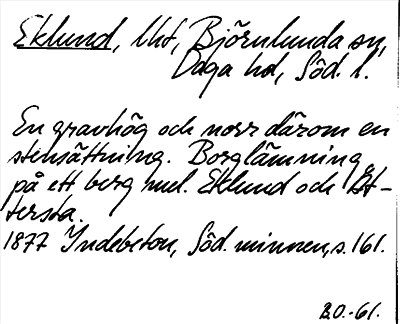 Eklund, lht, Björnlunda sn,
Daga hd, Söd. l.
En gravhög och norr därom en
stensättning. Borglämning
på ett berg mel. Eklund och Ät-
tersta.
1877 Indebetou, Söd. minnen, s. 161.
B.O.-61.